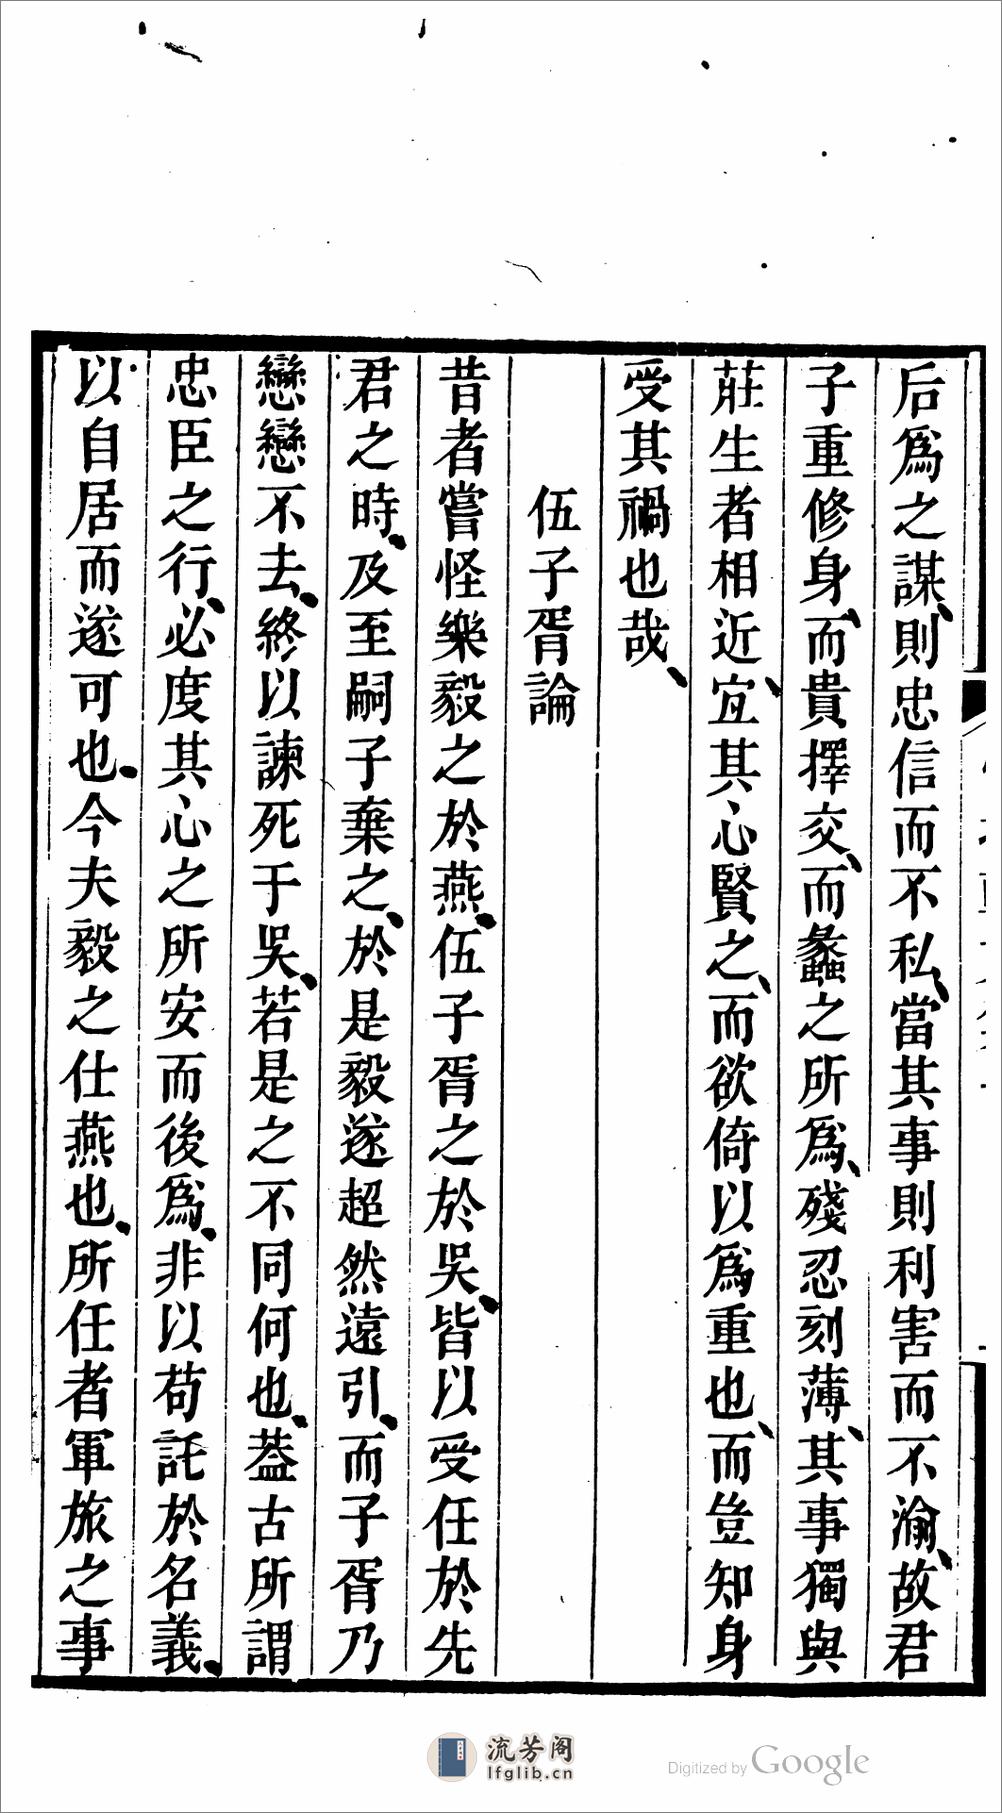 后爲之謀、則忠信而不私、當其事則利害而不渝、故君
子重修身、而貴擇交、而蠡之所爲、殘忍刻薄、其事獨與
莊生者相近、宜其心賢之、而欲倚以爲重也、而豈知身
受其禍也哉、
伍子胥論
昔者嘗怪樂毅之於燕、伍子胥之於吳、皆以受任於先
君之時、及至嗣子棄之、於是毅遂超然遠引、而子胥乃
戀戀不去、終以諫死于吳、若是之不同何也、葢古所謂
忠臣之行、必度其心之所安而後爲、非以苟託於名義、
以自居而遂可也、今夫毅之仕燕也、所任者軍旅之事
流芳阁
lfglib.cn
Digitized by Google